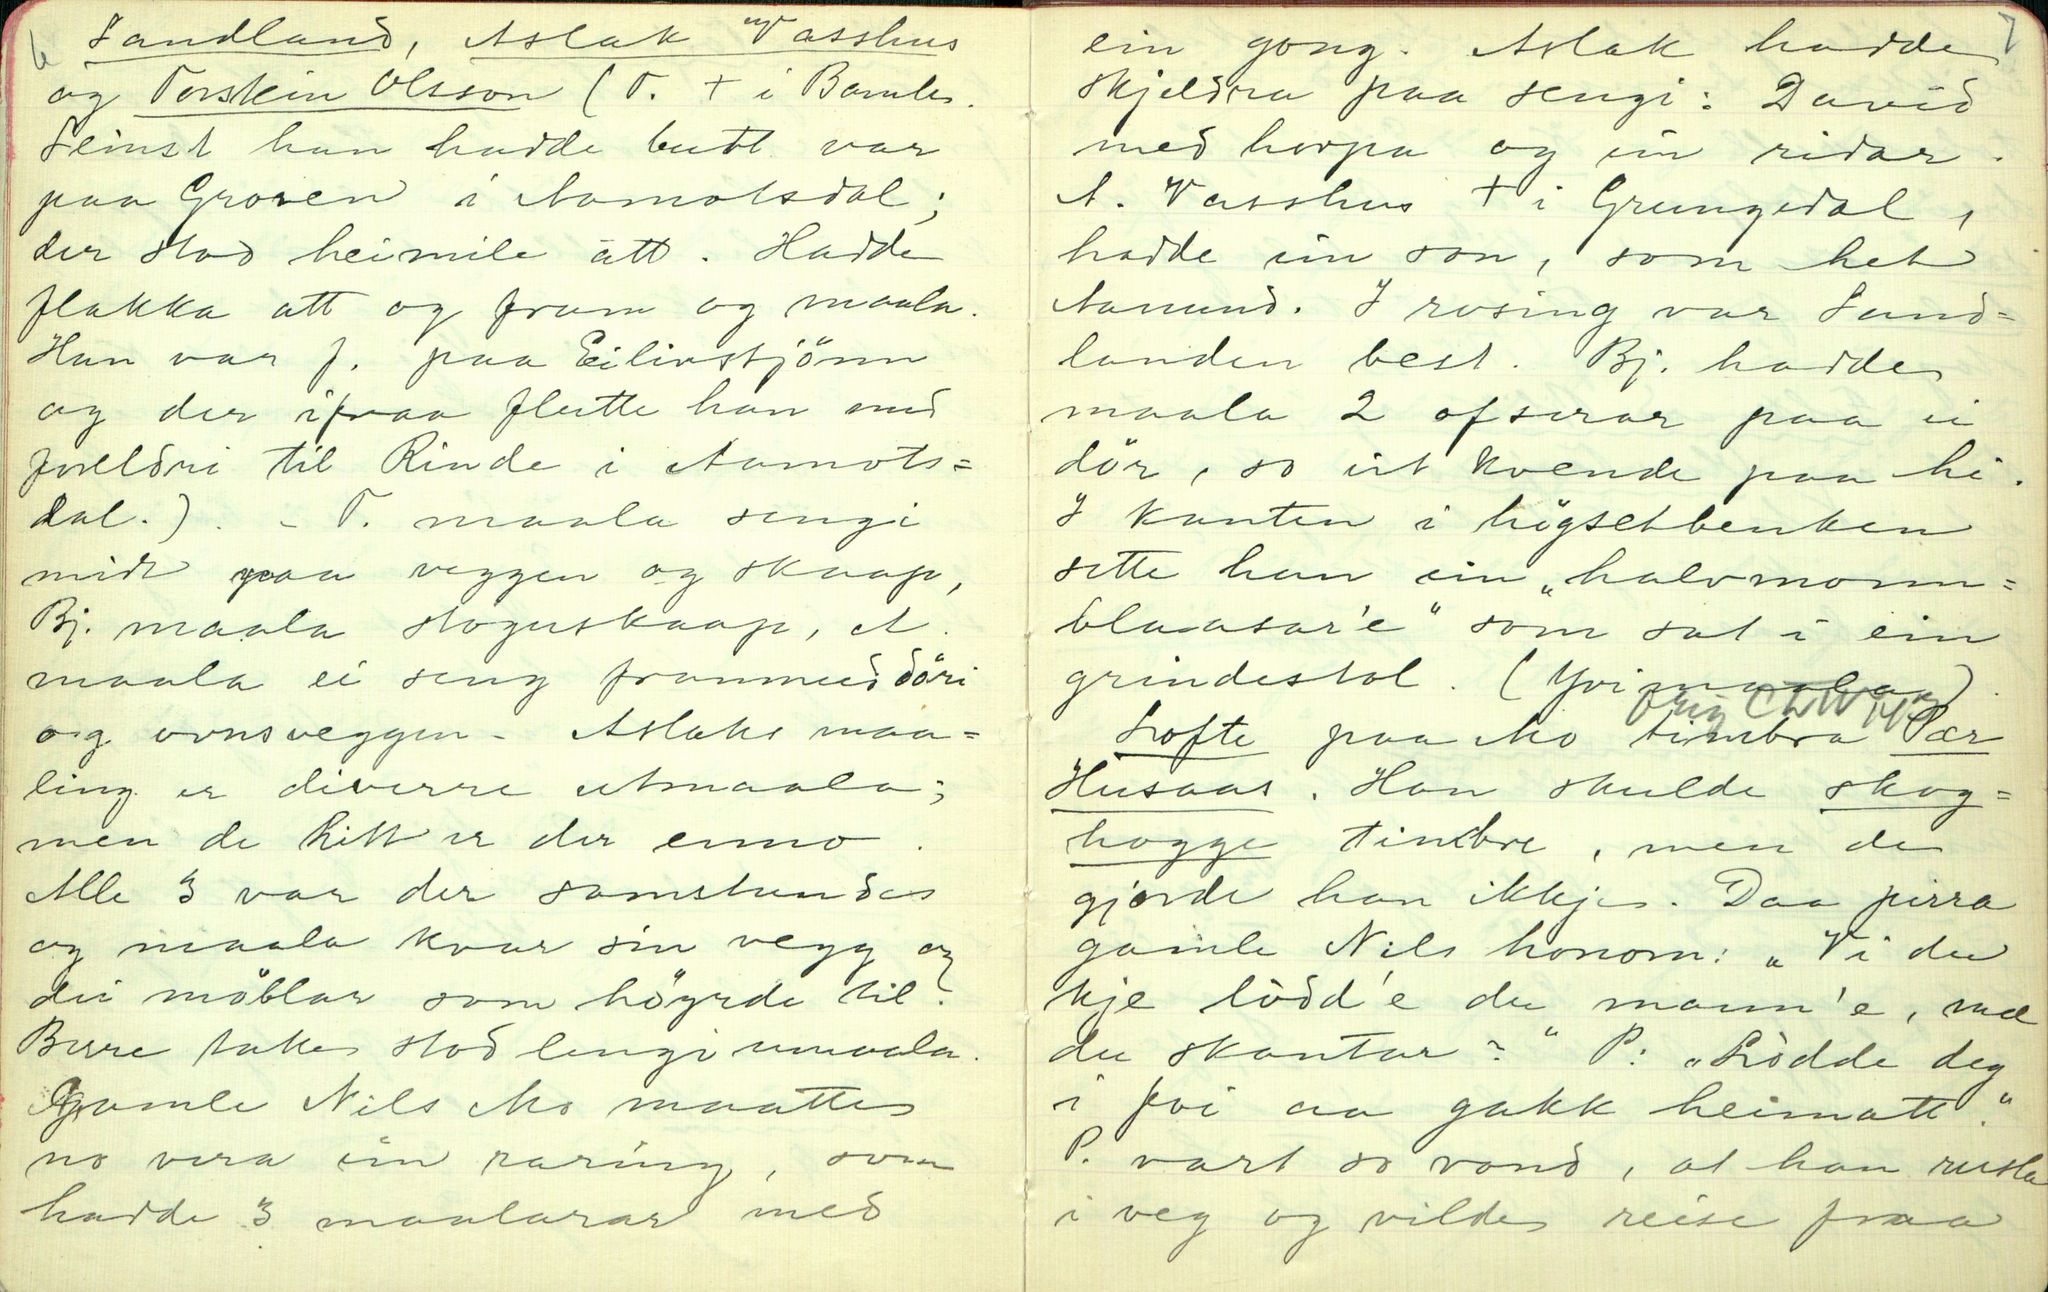 6
Sandland, Aslak Vasshus
og Torstein Olsson (T. + i Bamle.
Seinst han hadde butt var
paa Groven i Aamotsdal;
der stod heimile att. Hadde
flakka att og fram og maala.
Han var f. paa Eilivstjönn
og der ifraa flutte han med
foreldri til Rinde i Aamots=
dal.). - T. maala sengi
midt paa veggen og skaap,
Bj. maala stoguskaap, A.
maala ei seng frammed döri
og ovnsveggen - Aslaks maa=
ling er diverre utmaala;
men de hitt er der enno.
Alle 3 var der samstundes
og maala kvar sin vegg og
dei möblar som högrde til.
Berre take stod lengi umaala.
Gamle Nils Mo maatte
no vera ein raring, som
hadde 3 maalarar med
7
ein gong. Aslak hadde
skjeldra paa sengi: David
med horpa og ein ridar.
A. Vasshus + i Grungedal,
hadde ein son, som het
Aamund. I rosing var Sand=
landen best. Bj. hadde
maala 2 ofserar paa ei
dör, so eit kvende paa hi.
I kanten i högsetbenken
sette han ein „halvmonn=
blaasar'e" som sat i ein
grindestol. (Yvimaala).
Orig
Lofte paa Mo timbra Pær
Husaas. Han skulde skog=
hogge timbre, men de
gjorde han ikkje. Daa pirra
gamle Nils honom: „Vi du
kje lödd'e du mann'e, mæ
du skantar?" P: „Lödde deg
i fvi aa gakk heimatt."
P. vart so vond, at han rusla
i veg og vilde reise fraa